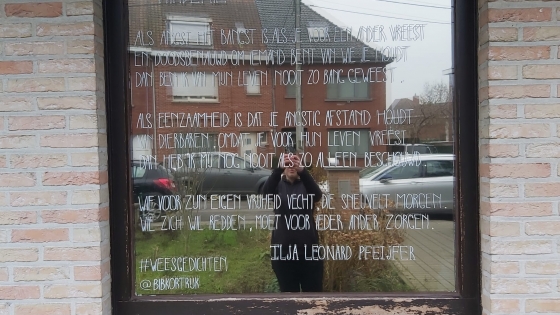 ALS ANGST HET BANGST IS ALS JE VOOR EEN ANDER VREEST
EN DOODSBENAUWD OM IEMAND BENT VAN WIE JE HOUDT
DAN BEN IK VAN MIJN LEVEN NOOIT ZO BANG GEWEEST.
ALS EENZAAMHEID IS DAT JE ANGSTIG AFSTAND HOUDT
VAN DIERBAREN, OMDAT JE VOOR HUN LEVEN VREEST
DAN HEB IK MIJ NOG NOOIT ALS ZO ALLEEN BESCHOUWD.
WIE VOOR ZIJN EIGEN VRIJHEID VECHT DIE SNEUVELT MORGEN.
WIE ZICH WIL REDDEN, MOET VOOR IEDER ANDER ZORGEN.
ILJA LEONARD PFEIJFER
#WEESGEDICHTEN
@BIBKORTRIJK